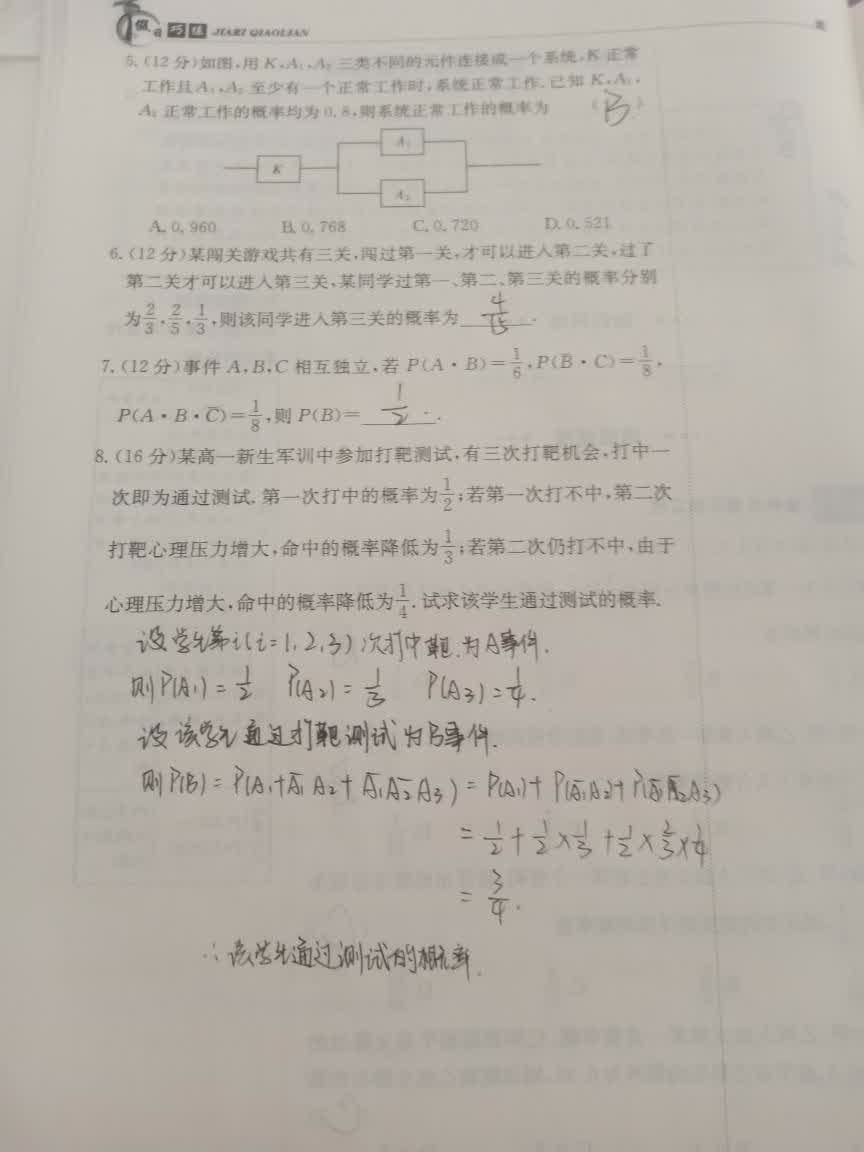 假日 巧练 JIARI QIAOLIAN
5.(12分)如图,用K、A₁、A₂三类不同的元件连接成一个系统,K正常
工作且A₁、A₂至少有一个正常工作时,系统正常工作.已知K、A₁、
A₂正常工作的概率均为0.8,则系统正常工作的概率为 ( B )
A₁
K
A₂
A. 0.960 B. 0.768 C. 0.720 D. 0.521
6.(12分)某闯关游戏共有三关,闯过第一关,才可以进入第二关,过了
第二关才可以进入第三关,某同学过第一、第二、第三关的概率分别
为2/3,2/5,1/3,则该同学进入第三关的概率为 4/15 .
7.(12分)事件A,B,C相互独立,若P(A·B)=1/6,P(B̄·C)=1/8,
P(A·B·C̄)=1/8,则P(B)= 1/2 .
8.(16分)某高一新生军训中参加打靶测试,有三次打靶机会,打中一
次即为通过测试.第一次打中的概率为1/2;若第一次打不中,第二次
打靶心理压力增大,命中的概率降低为1/3;若第二次仍打不中,由于
心理压力增大,命中的概率降低为1/4.试求该学生通过测试的概率.
设学生第i(i=1,2,3)次打中靶.为A事件.
则P(A₁)=1/2 P(A₂)=1/3 P(A₃)=1/4.
设该学生通过打靶测试为B事件.
则P(B)=P(A₁+Ā₁A₂+Ā₁Ā₂A₃)=P(A₁)+P(Ā₁A₂)+P(Ā₁Ā₂A₃)
=1/2+1/2×1/3+1/2×2/3×1/4
=3/4.
∴该学生通过测试的概率.